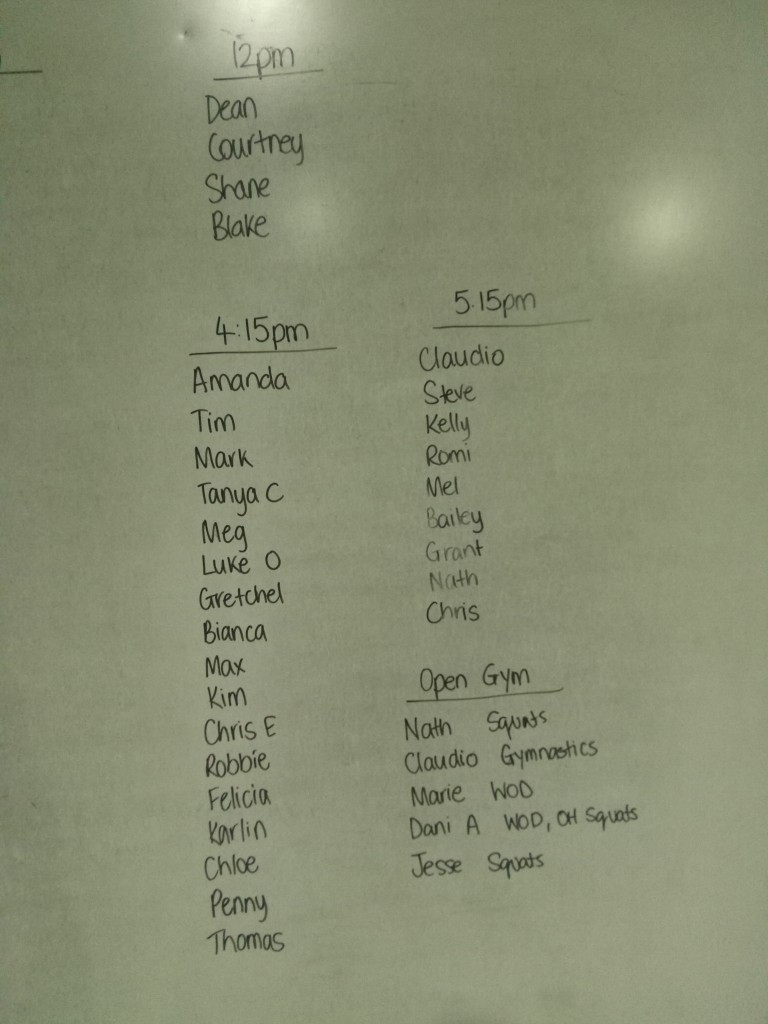 12pm
Dean
Courtney
Shane
Blake
4:15pm
Amanda
Tim
Mark
Tanya C
Meg
Luke O
Gretchel
Bianca
Max
Kim
Chris E
Robbie
Felicia
Karlin
Chloe
Penny
Thomas
5.15pm
Claudio
Steve
Kelly
Romi
Mel
Bailey
Grant
Nath
Chris
Open Gym
Nath Squats
Claudio Gymnastics
Marie WOD
Dani A WOD, OH Squats
Jesse Squats